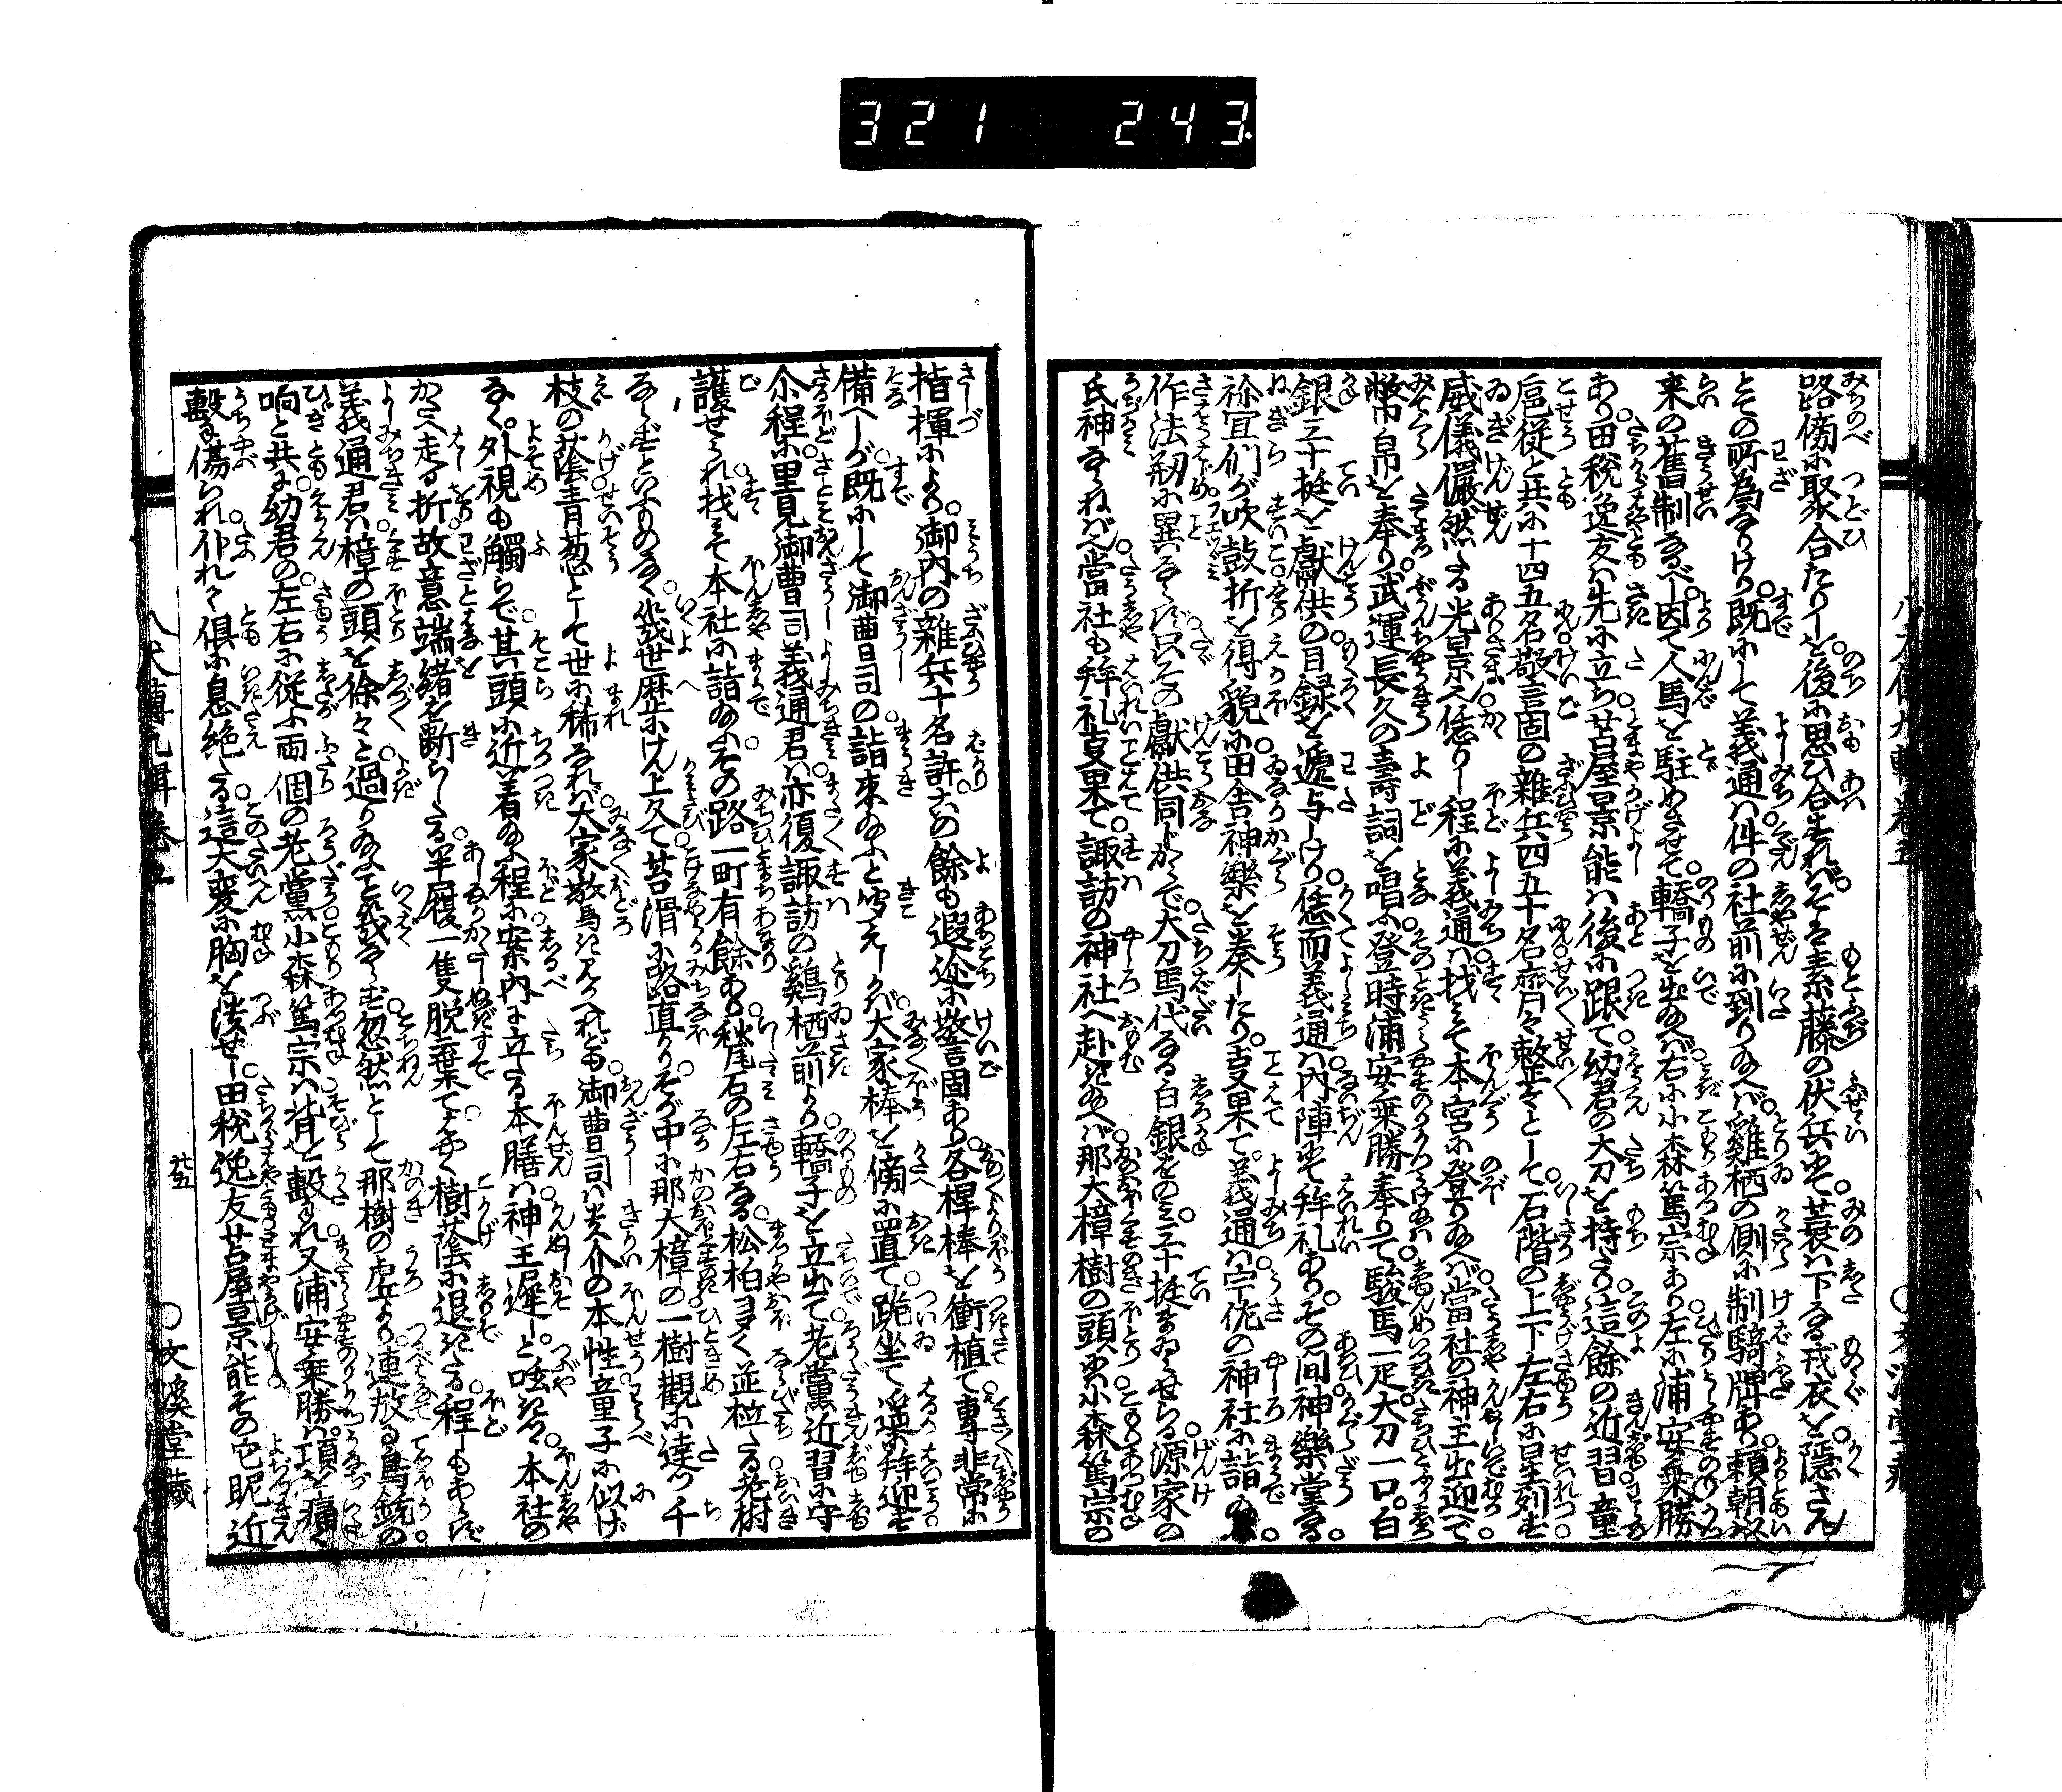 321 243
路傍に聚合たりしを。後に思ひ合すれば。そは素藤の伏兵にて。蓑は下なる戎衣を。隠さん
とての所為なりけり。既にして義通は。件の社前に到り給へば。雞栖の側に制騎牌あり。頼朝以
来の舊制なるべし。因て人馬を駐めさせて。轎子を出給へば。右に小森篤宗あり。左に浦安乗勝
あり。田税逸友は先に立ち。苫屋景能は後に跟て。幼君の大刀を持たり。這餘の近習童
扈従と共に十四五名。警固の雑兵四五十名。齊々整々として。石階の上下左右に星列す。
威儀儼然たる光景也。恁りし程に義通は。找みて本宮に登り給へば。當社の神主出迎へて。
幣帛を奉り。武運長久の壽詞を唱ふ。登時浦安乗勝奉りて。駿馬一疋大刀一口。白
銀三十挺を。獻供の目録を逓与しけり。恁而義通は。内陣にて拜礼あり。その間神樂堂なる。
祢宜們が吹鼓折を得貌に。田舎神樂を奏したり。事果て。義通は。宇佐の神社に詣給ふ。
作法初に異ならず。只その獻供同じからで。大刀馬代なる白銀をのみ。三十挺まゐらせらる。源家の
氏神ならねばなり。當社も拜礼事果て。諏訪の神社へ赴き給へば。那大樟樹の頭まで。小森篤宗の
指揮により。御内の雜兵十名許。その餘も遐迩に警固あり。各桿棒を衝植て。専非常に
備へしが。既にして御曹司の詣来給ふと聞えしかば。大家棒を傍に置て。跪坐て遥拜迎す。
尒程に。里見御曹司義通君は。亦復諏訪の鷄栖前より。轎子を立出て。老黨近習に守
護せられ。找みて本社に詣給ふ。その路一町有餘あり。甃石の左右なる。松柏多く並立たる。老樹
ならずといふものなく。幾世歴にけん上久て。苔滑に路直かり。そが中に那大樟の一樹觀に達つ千
枝の蔭。青葱として世に稀なれば。大家敬馬きみかへれども。御曹司は尖介の本性。童子に似げ
なく。外視も觸らで。其頭に近着給ふ程に。案内に立たる本膳は。神主遅しと呟きて。本社の
かたへ走る折。故意端緒を断らしたる。草履一隻脱棄て。走く樹蔭に退きたる。程しもあらず
義通君は。樟の頭を徐々と。過り給ふこと幾ならず。忽然として那樹の虚より。連放る鳥銃の
响と共に。幼君の左右に従ふ。両個の老黨。小森篤宗は。背を敷れ。又浦安乗勝は。項を痛く
敷傷られ。仆れて倶に息絶たる。這大変に胸を潰せし。田税逸友苫屋景能。その它昵近
八犬傳九輯卷五
廿五
○文溪堂藏